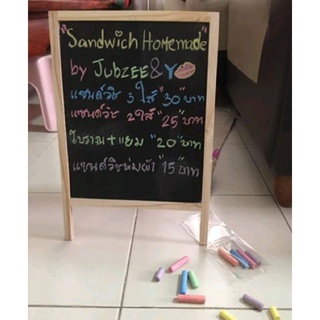 "Sandwich Homemade"
by JubZEE&Y
แซนด์วิช 3 ไส้ "30" บาท
แซนด์วิช 2 ไส้ "25" บาท
โบราณ+แยม "20" บาท
แซนด์วิชห่มผ้า "15" บาท